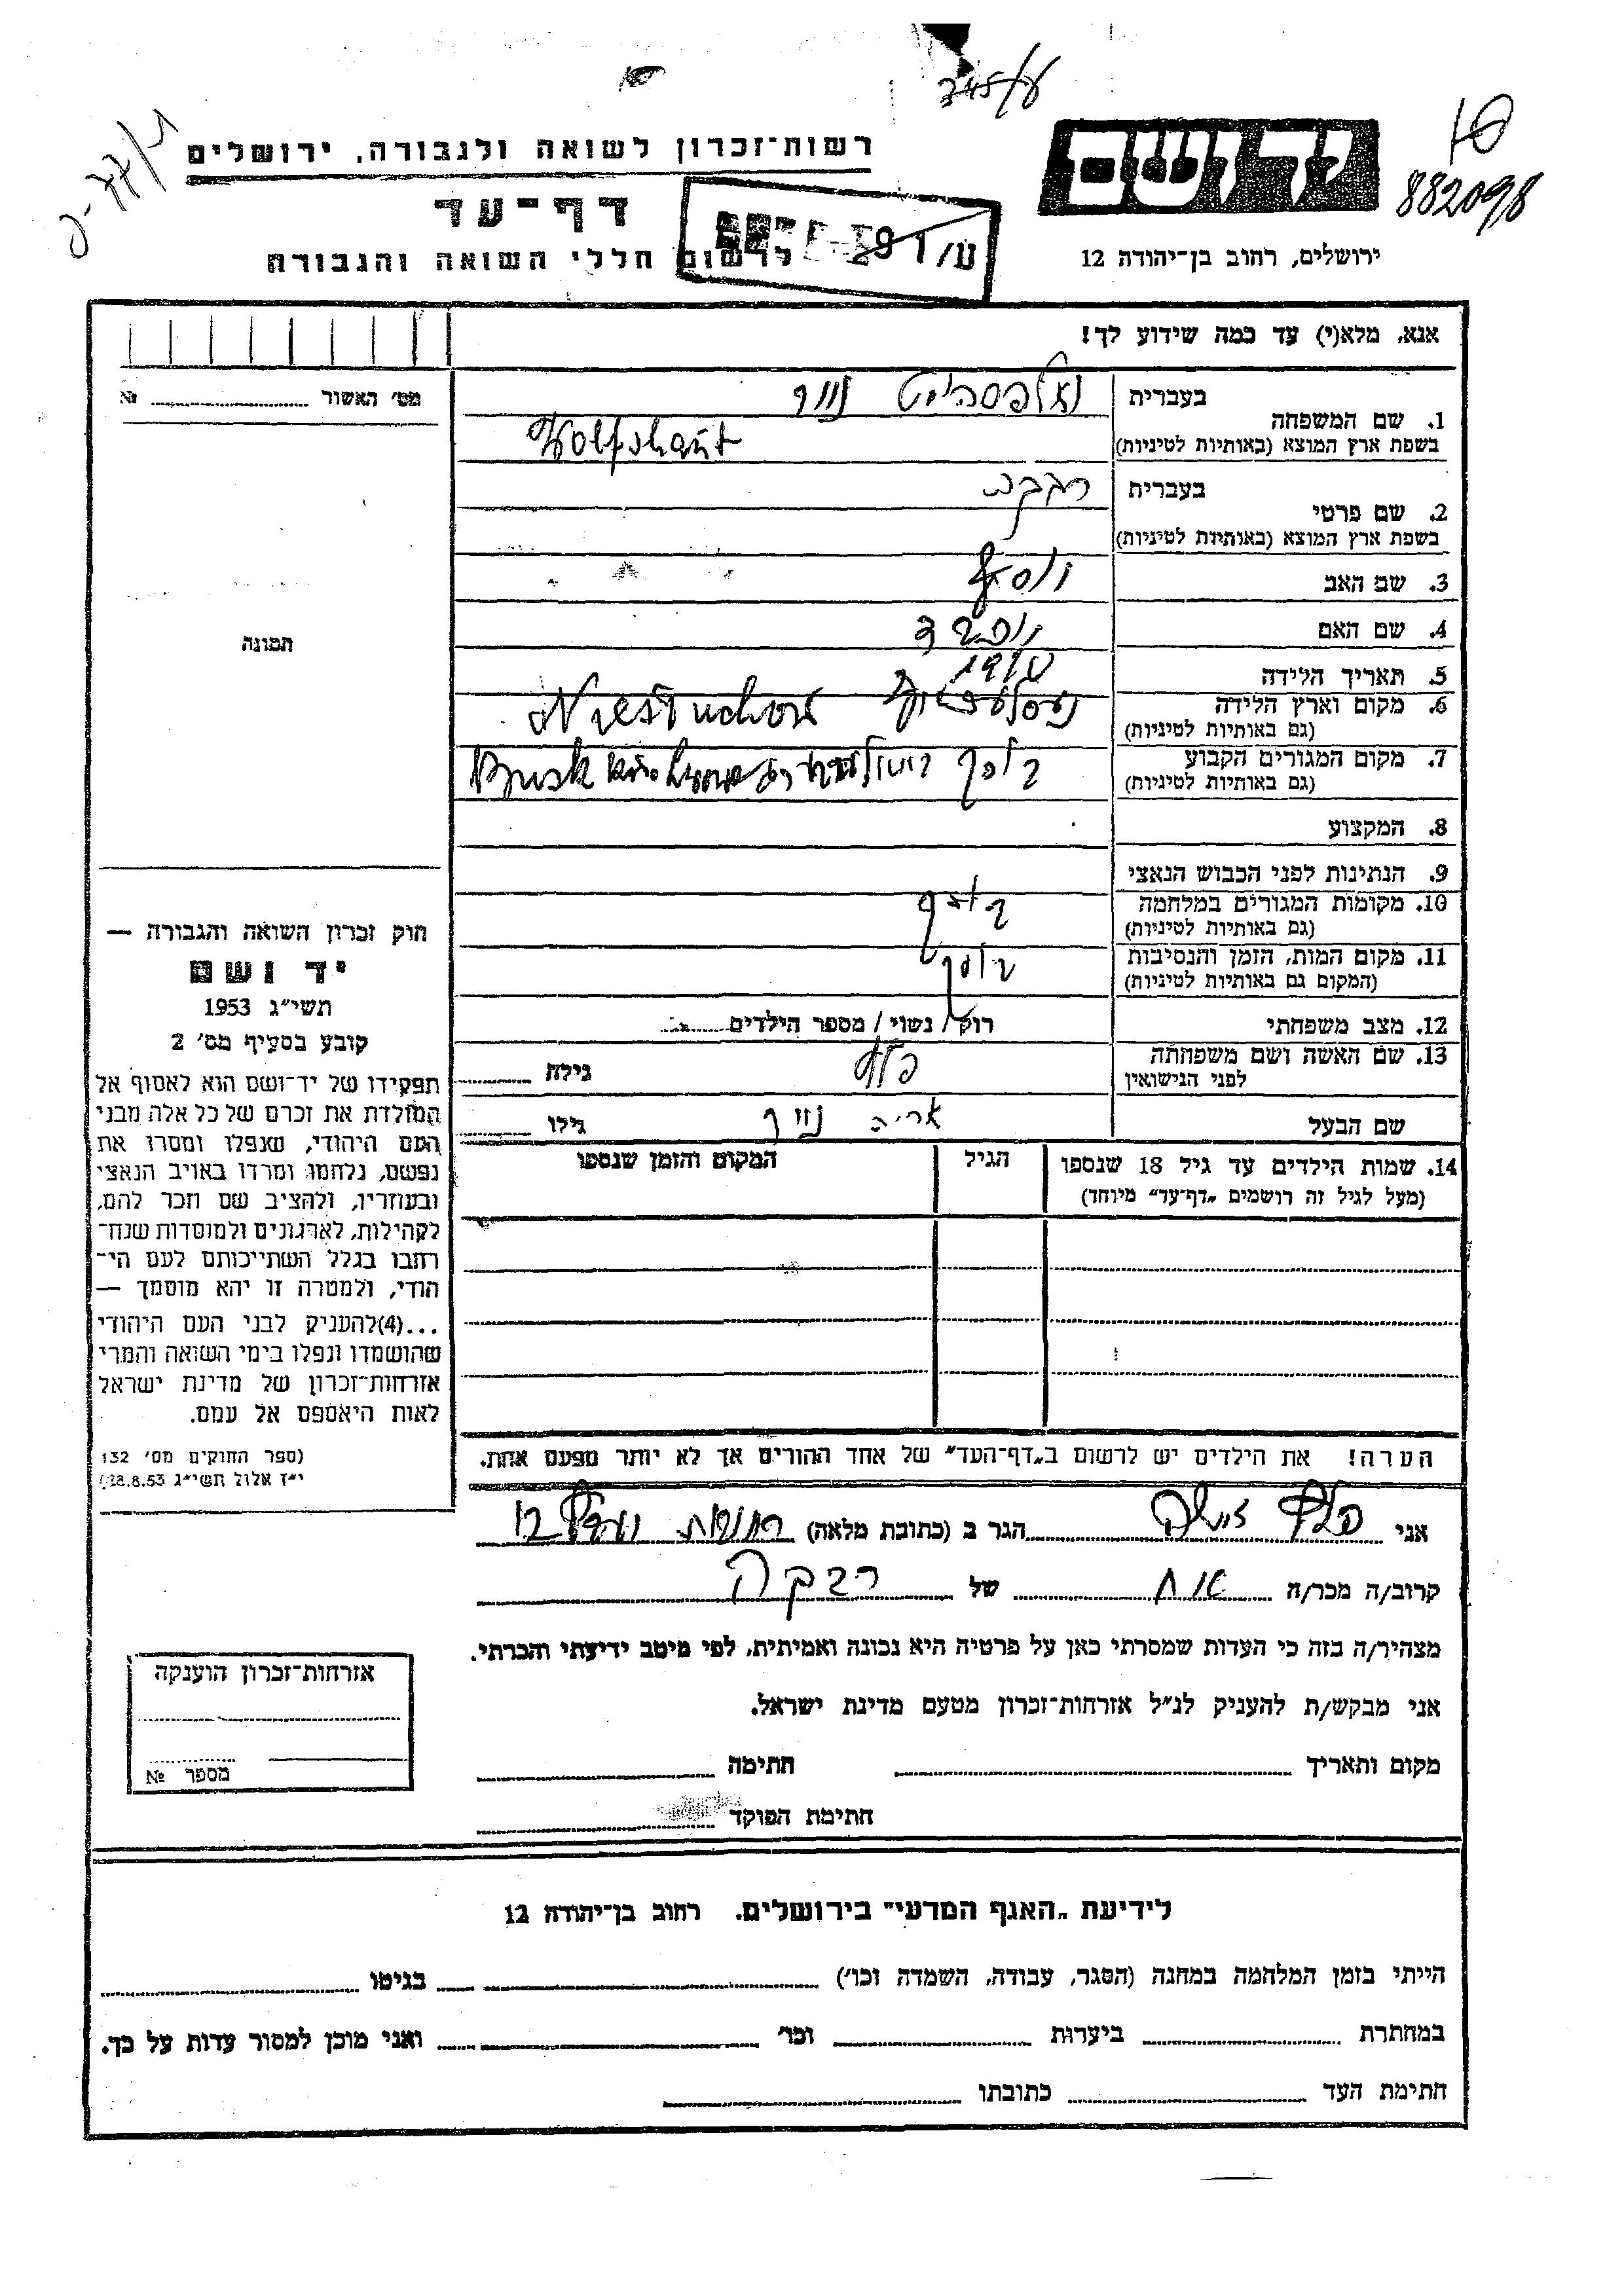 רשות־זכרון לשואה ולגבורה, ירושלים
דף־עד
לרשום חללי השואה והגבורה
יד ושם
882098
ירושלים, רחוב בן־יהודה 12
אנא, מלא(י) עד כמה שידוע לך!
מס׳ האשור № 
1. שם המשפחה
בעברית
בשפת ארץ המוצא (באותיות לטיניות) Wolfshaut
2. שם פרטי
בעברית רבקה
בשפת ארץ המוצא (באותיות לטיניות)
3. שם האב יוסף
4. שם האם
5. תאריך הלידה
6. מקום וארץ הלידה
(גם באותיות לטיניות)
7. מקום המגורים הקבוע Busk
(גם באותיות לטיניות)
8. המקצוע
9. הנתינות לפני הכבוש הנאצי
10. מקומות המגורים במלחמה בוסק
(גם באותיות לטיניות)
11. מקום המות, הזמן והנסיבות בוסק
(המקום גם באותיות לטיניות)
12. מצב משפחתי רוק / נשוי / מספר הילדים
13. שם האשה ושם משפחתה
לפני הנישואין
גילה
שם הבעל אריה
גילו
14. שמות הילדים עד גיל 18 שנספו
(מעל לגיל זה רושמים „דף־עד״ מיוחד)
הגיל
המקום והזמן שנספו
הערה! את הילדים יש לרשום ב„דף־העד״ של אחד ההורים אך לא יותר מפעם אחת.
תמונה
חוק זכרון השואה והגבורה —
יד ושם
תשי״ג 1953
קובע בסעיף מס׳ 2
תפקידו של יד־ושם הוא לאסוף אל
המולדת את זכרם של כל אלה מבני
העם היהודי, שנפלו ומסרו את
נפשם, נלחמו ומרדו באויב הנאצי
ובעוזריו, ולהציב שם וזכר להם,
לקהילות, לארגונים ולמוסדות שנח־
רבו בגלל השתייכותם לעם הי־
הודי, ולמטרה זו יהא מוסמך —
...(4)להעניק לבני העם היהודי
שהושמדו ונפלו בימי השואה והמרי
אזרחות־זכרון של מדינת ישראל
לאות היאספם אל עמם.
(ספר החוקים מס׳ 132
י״ז אלול תשי״ג 28.8.53)
אני
הגר ב (כתובת מלאה)
קרוב/ה מכר/ה אח של רבקה
מצהיר/ה בזה כי העדות שמסרתי כאן על פרטיה היא נכונה ואמיתית, לפי מיטב ידיעתי והכרתי.
אני מבקש/ת להעניק לנ״ל אזרחות־זכרון מטעם מדינת ישראל.
מקום ותאריך
חתימה
חתימת הפוקד
אזרחות־זכרון הוענקה
מספר №
לידיעת „האגף המדעי״ בירושלים. רחוב בן־יהודה 12
הייתי בזמן המלחמה במחנה (הסגר, עבודה, השמדה וכו׳) בגיטו
במחתרת ביערות וכו׳ ואני מוכן למסור עדות על כך.
חתימת העד כתובתו